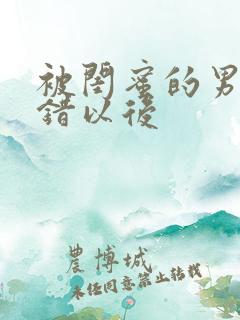 被閨蜜的男
錯以後
農博城
未经同意禁止转载